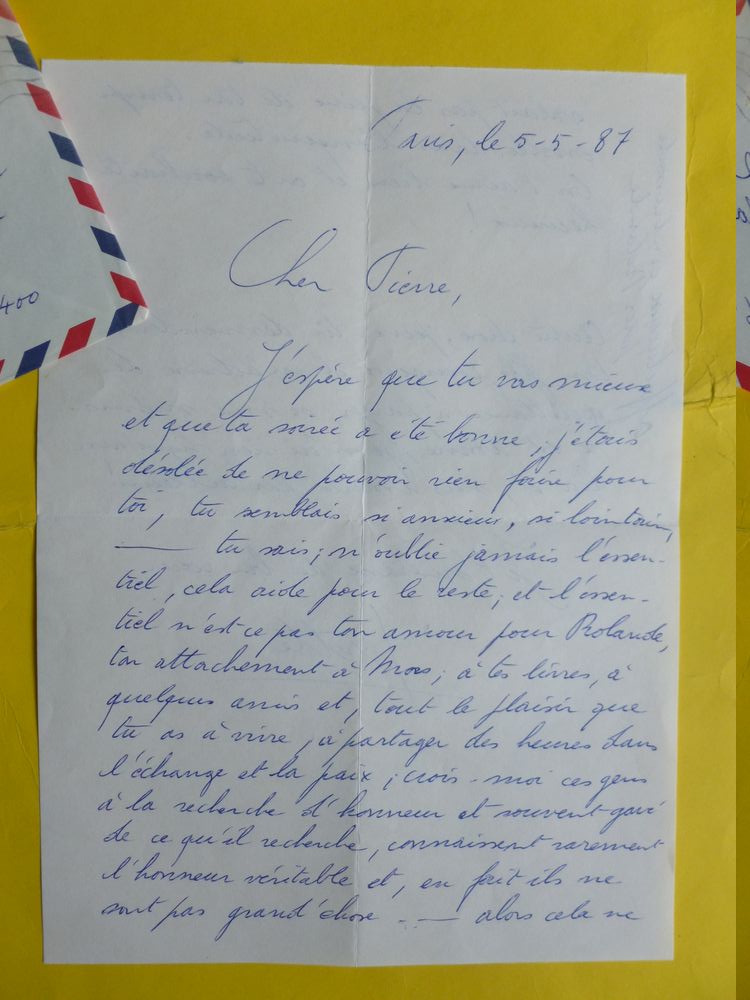 Paris, le 5-5-87
Cher Pierre,
J'espère que tu vas mieux
et que ta soirée a été bonne, j'étais
désolée de ne pouvoir rien faire pour
toi, tu semblais si anxieux, si lointain,
— tu sais; n'oublie jamais l'essen-
tiel, cela aide pour le reste, et l'essen-
tiel n'est ce pas ton amour pour Rolande,
ton attachement à ; à tes livres, à
quelques amis et, tout le plaisir que
tu as à vivre, à partager des heures dans
l'échange et la paix; crois-moi ces gens
à la recherche d'honneur et souvent gavé
de ce qu'il recherche, connaissent rarement
l'honneur véritable et, en fait ils ne
sont pas grand'chose . — alors cela ne
400